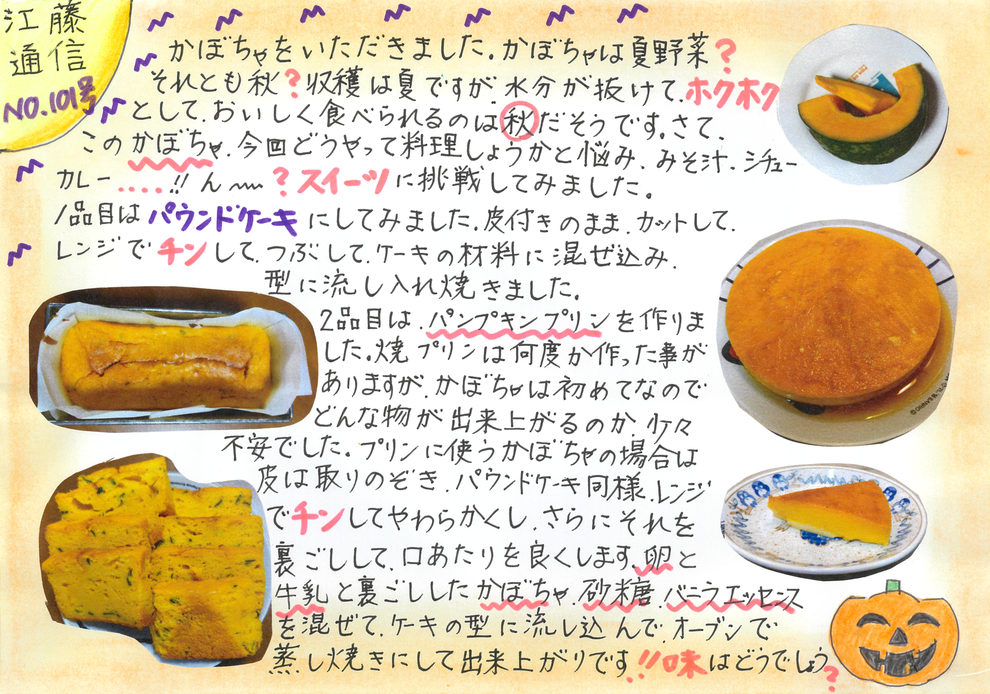 江藤
通信
NO.101号
かぼちゃをいただきました。かぼちゃは夏野菜?
それとも秋?収穫は夏ですが、水分が抜けて、ホクホク
として、おいしく食べられるのは秋だそうです。さて、
このかぼちゃ、今回どうやって料理しょうかと悩み、みそ汁、シチュー
カレー....!!ん〜?スイーツに挑戦してみました。
1品目はパウンドケーキにしてみました。皮付きのまま、カットして、
レンジでチンして、つぶして、ケーキの材料に混ぜ込み、
型に流し入れ焼きました。
2品目は、パンプキンプリンを作りま
した。焼プリンは何度か作った事が
ありますが、かぼちゃは初めてなので
どんな物が出来上がるのか、少々
不安でした。プリンに使うかぼちゃの場合は
皮は取りのぞき、パウンドケーキ同様、レンジ
でチンしてやわらかくし、さらにそれを
裏ごしして、口あたりを良くします。卵と
牛乳と裏ごししたかぼちゃ、砂糖、バニラエッセンス
を混ぜて、ケーキの型に流し込んで、オーブンで
蒸し焼きにして出来上がりです!!味はどうでしょう?